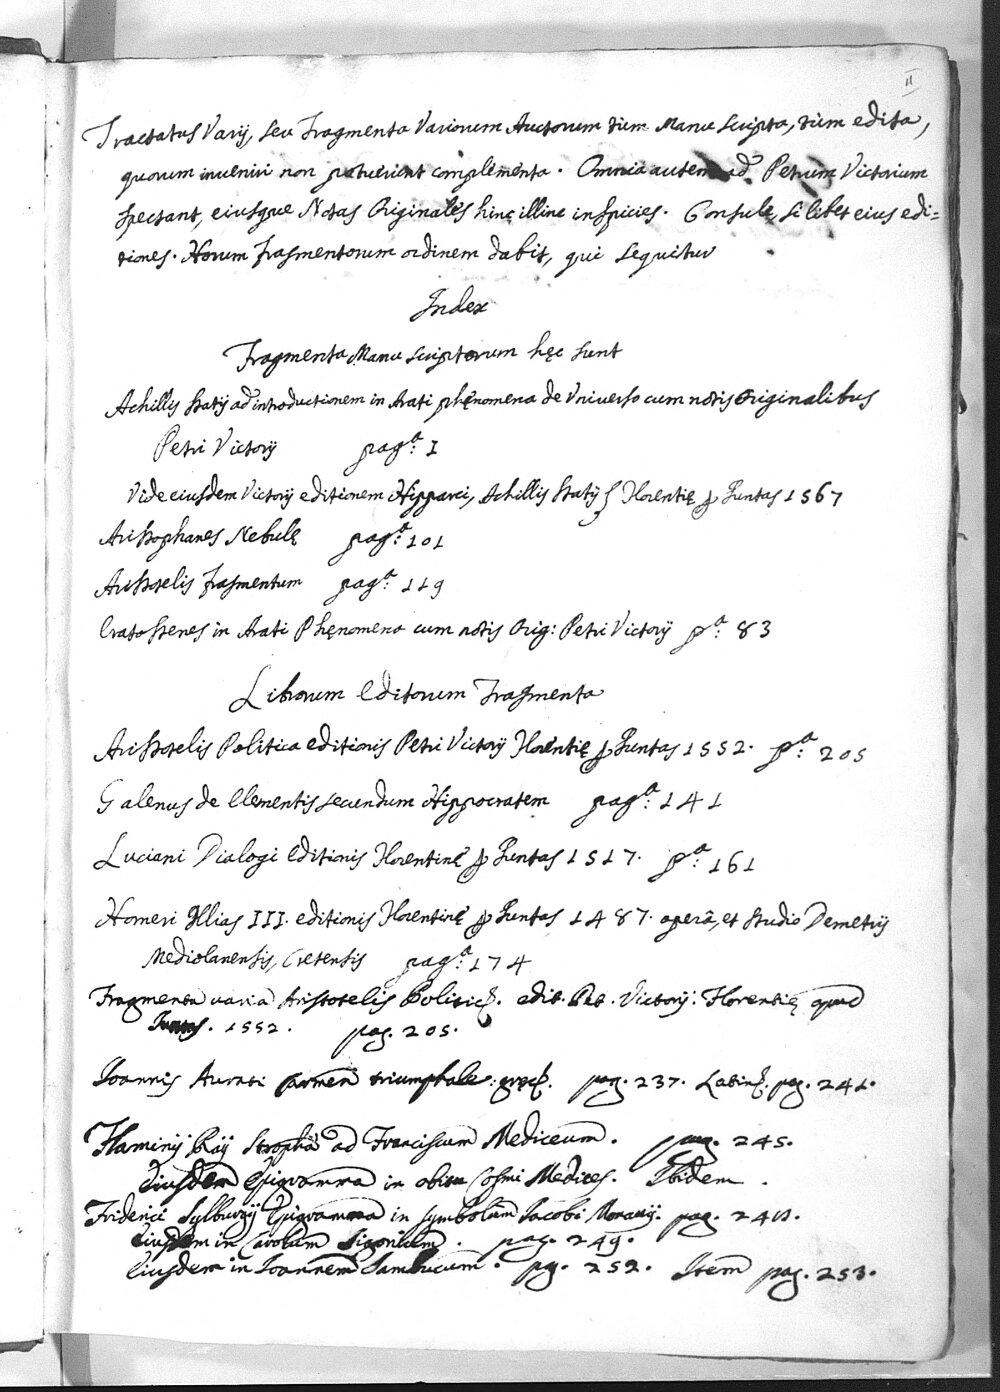 II
Tractatus Varij, seu Fragmenta Variorum Auctorum tùm Manu scripta, tùm edita,
quorum inveniri non potuerunt complementa. Omnia autem ad Petrum Victorium
spectant, eiusque Notas Originales hinc illinc inspicies. Consule, si libet eius edi=
tiones. Horum fragmentorum ordinem dabit, qui sequitur
Index
Fragmenta Manu scriptorum hęc sunt
Achillis Statij ad introductionem in Arati phęnomena de Universo cum notis Originalibus
Petri Victorij pag.ª: 1
Vide eiusdem Victorij editionem Hipparci, Achillis Statij Florentię Juntas 1567
Aristophanes Nebulę pag.ª: 101
Aristotelis fragmentum pag.ª: 119
Eratostenes in Arati Phęnomena cum notis Orig: Petri Victorij p.ª: 83
Librorum Editorum Fragmenta
Aristotelis Politica editionis Petri Victorij Florentię Juntas 1552. p.ª: 205
Galenus de Elementis secundum Hippocratem pag.ª: 141
Luciani Dialogi Editionis Florentinę Juntas 1517. p.ª: 161
Homeri Illias III. editionis Florentinę Juntas 1487. operâ, et studio Demetrij
Mediolanensis, Cretensis pag.ª: 174
Fragmenta varia Aristotelis Politic. edit. Pet. Victorij: Florentię apud
Juntas. 1552. pag. 205.
Ioannis Aurati carmen triumphale: gręc. pag. 237. Latin. pag. 241.
Flaminij Raij Stropha ad Franciscum Mediceum. pag. 245.
Eiusdem Epigramma in obitu Cosmi Medices. Ibidem.
Friderici Sylburgij Epigramma in symbolum Iacobi Monavij. pag.
Eiusdem in Carolum Sigonium. pag. 249.
Eiusdem in Ioannem Sambucum. pag. 252. Item pag. 253.